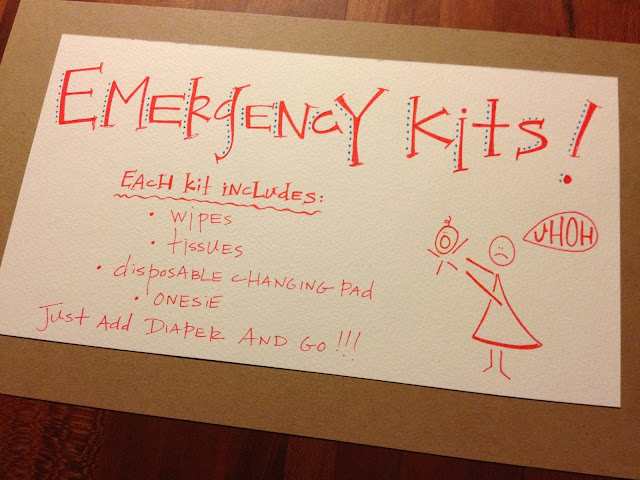 EMERGENCY Kits!
EACH kit iNCLUDES:
• wipes
• tissues
• disposABLE CHANGING pAd
• ONESiE
Just Add DiApER AND GO!!!
UHOH